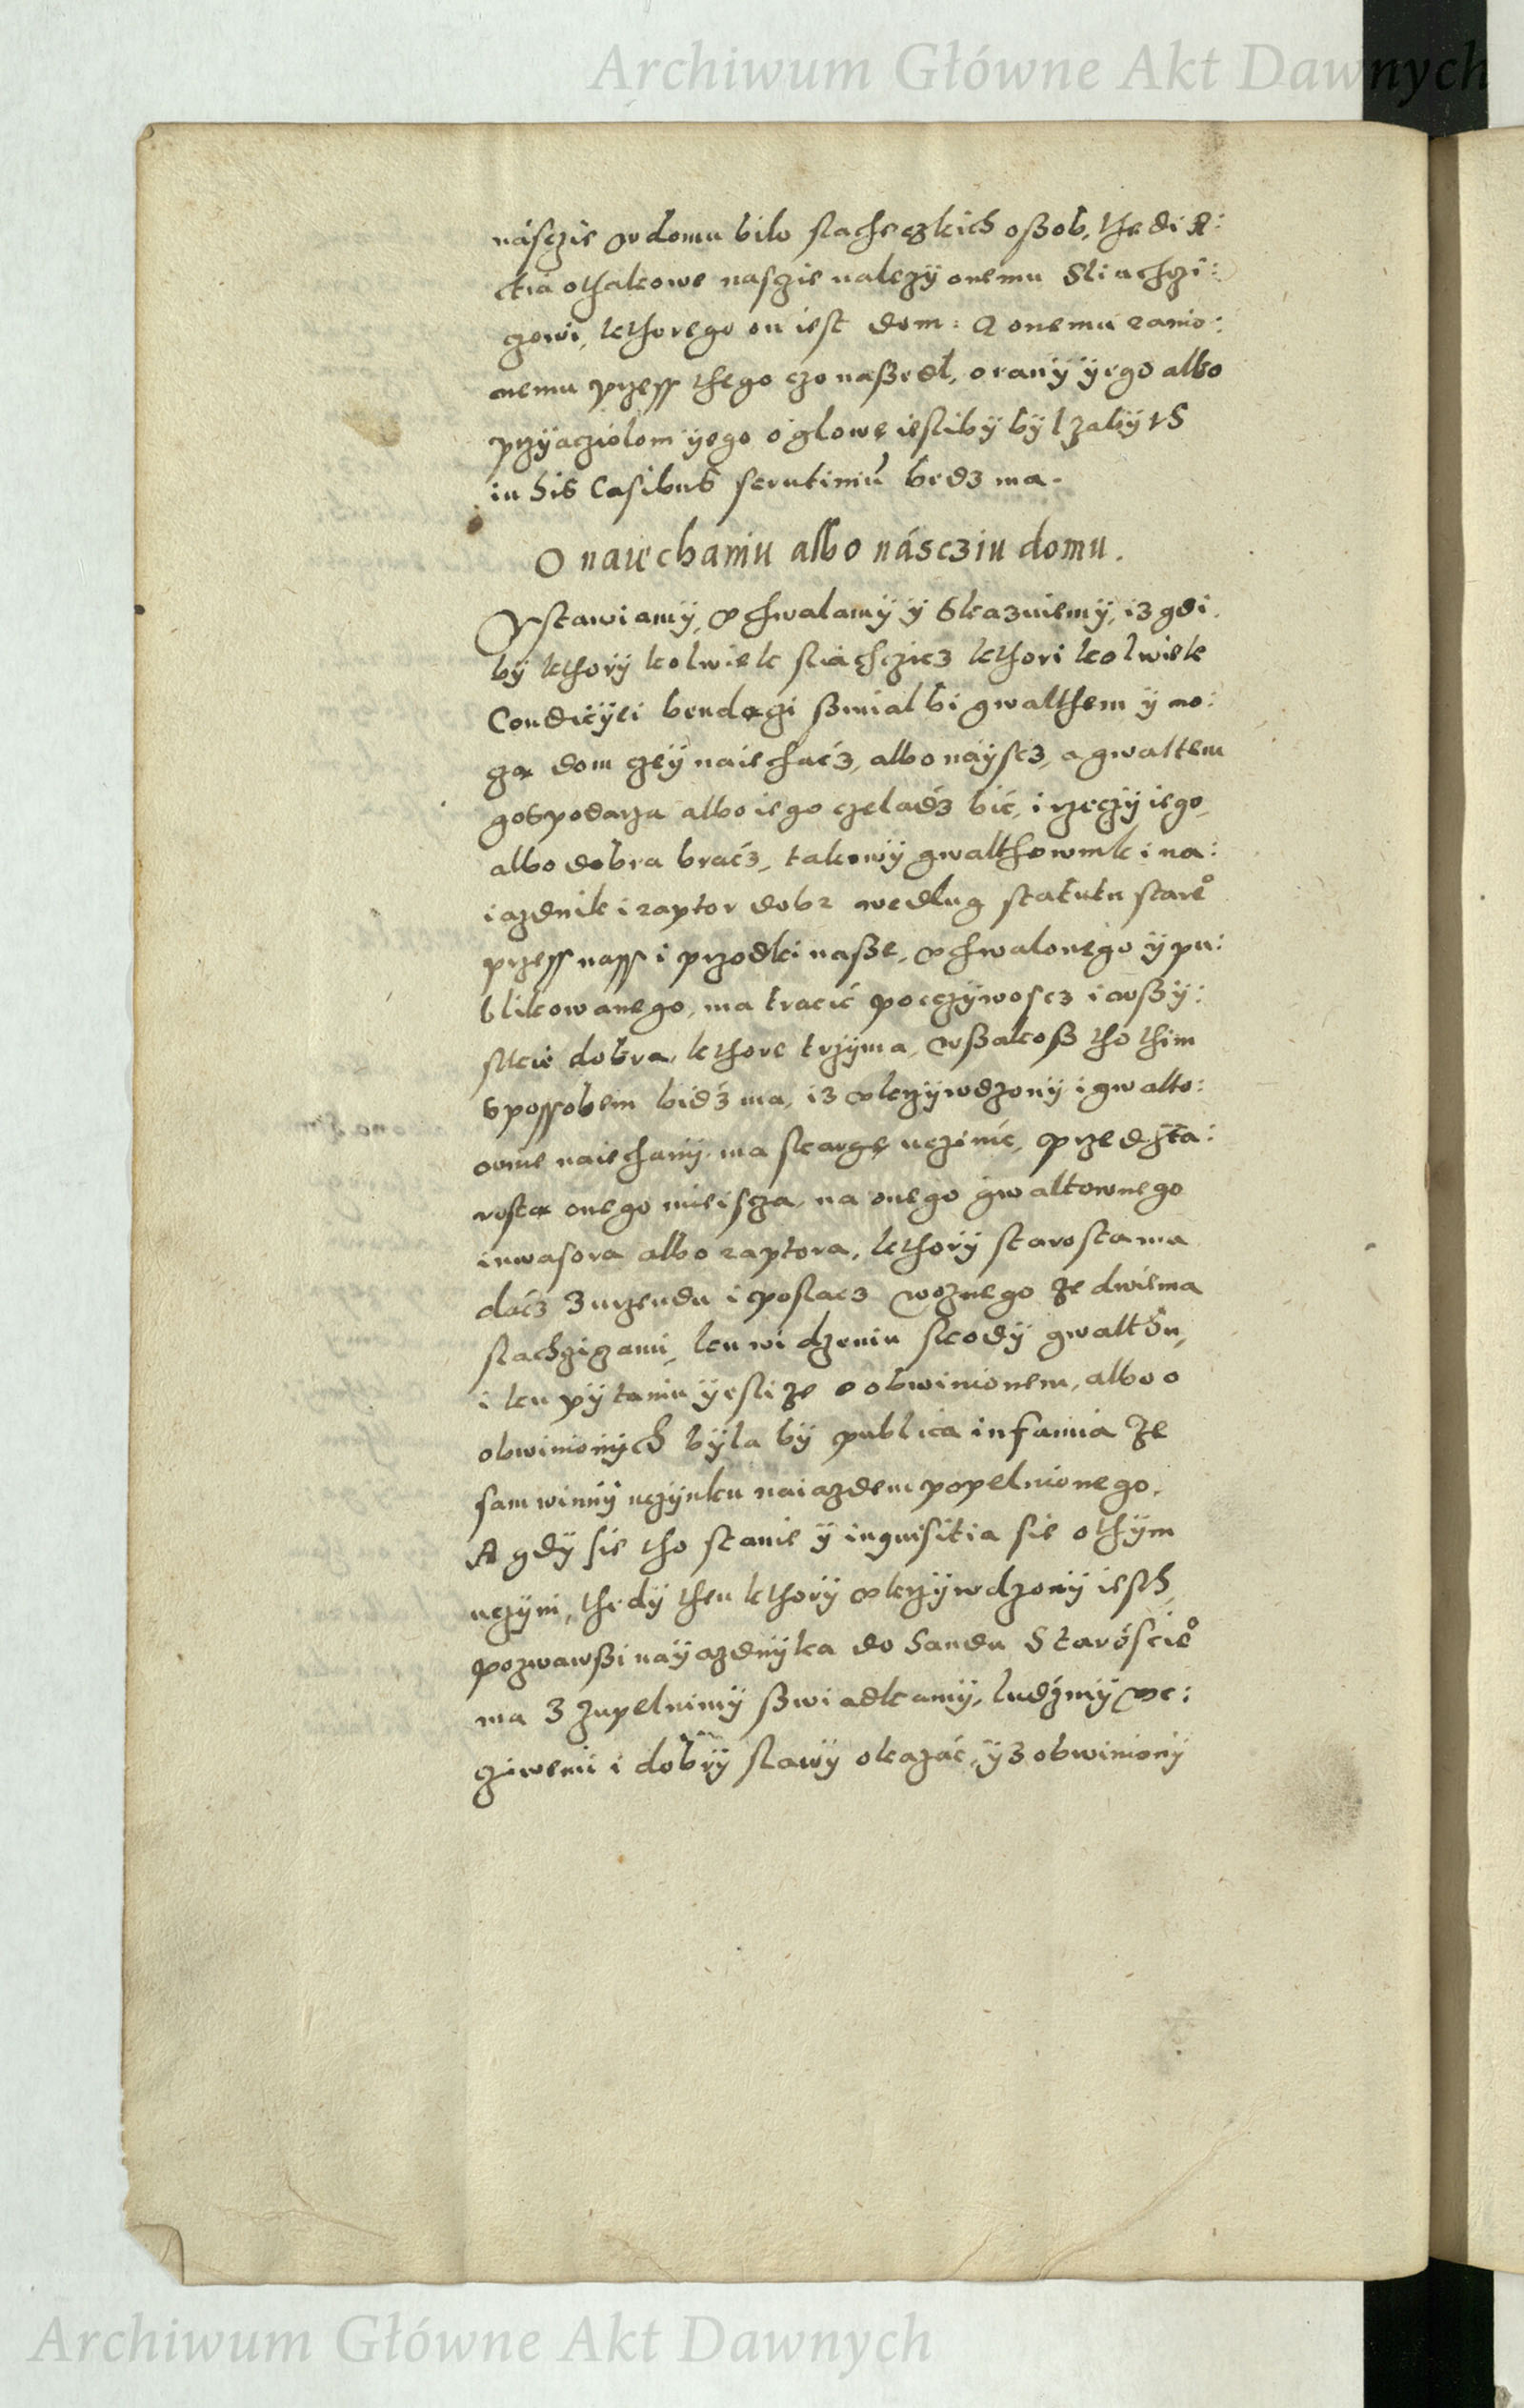 Archiwum Główne Akt Dawnych
násczie w domu bilo slacheczkich oßob, thedi A:
ctia o thakowe nasczie nalezÿ onemu Sliachczi:
czowi, kthorego on iest dom: A onemu ranio:
nemu przess thego czo naßedl, o ranÿ ÿego albo
przÿacziolom ÿego o glowę ieslibÿ bÿl zabÿtS
in his Casibus scrutiniũ bedz ma.
O naiechaniu albo násczіu domu.
Vstawiamÿ, vchwalamÿ ÿ Skazuiemÿ, iz gdi
bÿ kthorÿ kolwiek sliachczicz kthori kolwiek
Condicÿei bendączi ßmial bi gwalthem ÿ mo:
czą dom czeÿ naiechacz, albo naÿscz, a gwaltem
gospodarza albo iego czeladz bić, i rzeczÿ iego,
albo dobra bracz, takowÿ gwalthownik i na:
iazdnik i raptor dobr wedlug statutu stare°
przess nass i przodki naße, vchwalonego ÿ pu:
blikowanego, ma tracić poczczÿwoscz i wßÿ:
stkie dobra, kthore trzÿma, wßakoß tho thim
spossobem bidz ma, iz vkrzÿwdzonÿ i gwalto:
wnie naiechanÿ, ma skargę uczinić, przed sta:
rostą onego mieiscza, na onego gwaltownego
inwasora albo raptora, kthorÿ starosta ma
dacz z urzendu i poslacz woznego ze dwiema
slachzizami, ku widzeniu skodÿ gwalthu,
i ku pÿtaniu ÿesli ze o obwinionem, albo o
obwinionÿch bÿla bÿ publica infamia ze
sam winnÿ uczÿnku naiazdem popelnionego,
A gdÿ sie tho stanie ÿ inquisitia sie o thÿm
uczÿni, thedÿ then kthorÿ vkrzÿwdzonÿ iesth,
pozwawßi naÿazdnÿka do Sandu Staroście°
ma z zupelnimÿ ßwiadkamÿ, ludzmÿ vc:
ziwemi i dobrÿ slawÿ okazać, ÿz obwinionÿ
Archiwum Główne Akt Dawnych